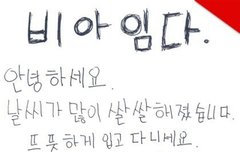 비아임다.
안녕하세요.
날씨가 많이 쌀쌀해졌습니다.
뜨뜻하게 입고 다니세요.